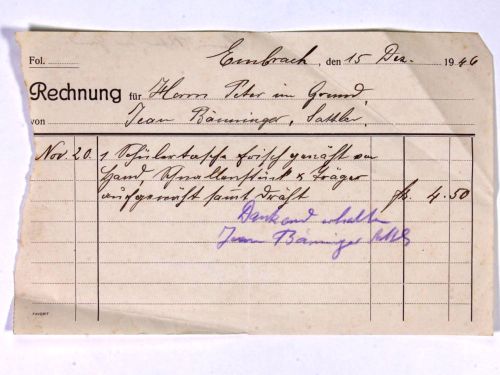 Fol. Embrach, den 15 Dez. 1946
Rechnung für Herrn Peter im Grund,
von Jean Bänninger, Sattler.
Nov. 20. 1 Schülertasche frisch genäht von
Hand, Schnallenstück & Träger
aufgenäht samt Draht fr. 4.50
Dankend erhalten
Jean Bänninger
FAVORIT